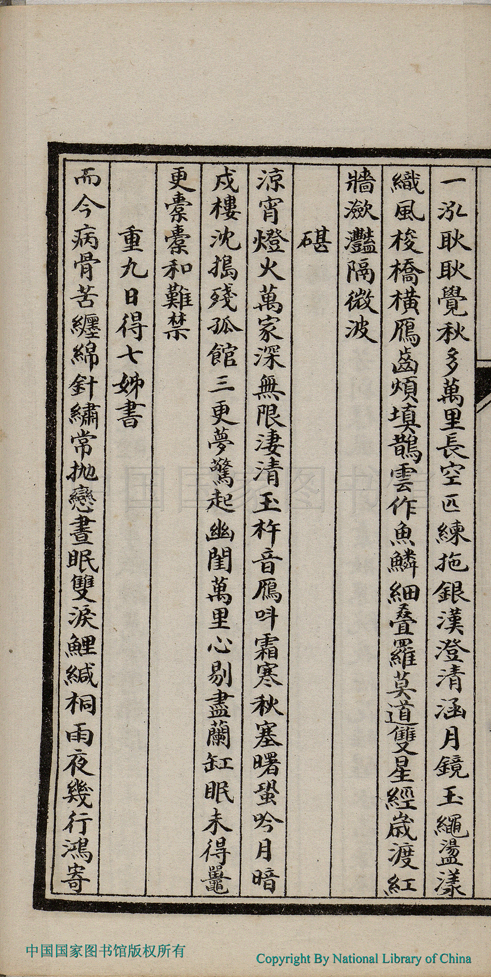 一泓耿耿覺秋多萬里長空匹練拖銀漢澄清涵月鏡玉繩盪漾
織風梭橋橫鴈齒煩填鵲雲作魚鱗細疊羅莫道雙星經歲渡紅
牆瀲灩隔微波
碪
涼宵燈火萬家深無限淒清玉杵音鴈呌霜寒秋塞曙蛩吟月暗
戍樓沈搗殘孤館三更夢驚起幽閨萬里心剔盡蘭缸眠未得鼍
更橐橐和難禁
重九日得七姊書
而今病骨苦纏綿針繡常拋戀晝眠雙淚鯉緘桐雨夜幾行鴻寄
中国国家图书馆版权所有
Copyright By National Library of China